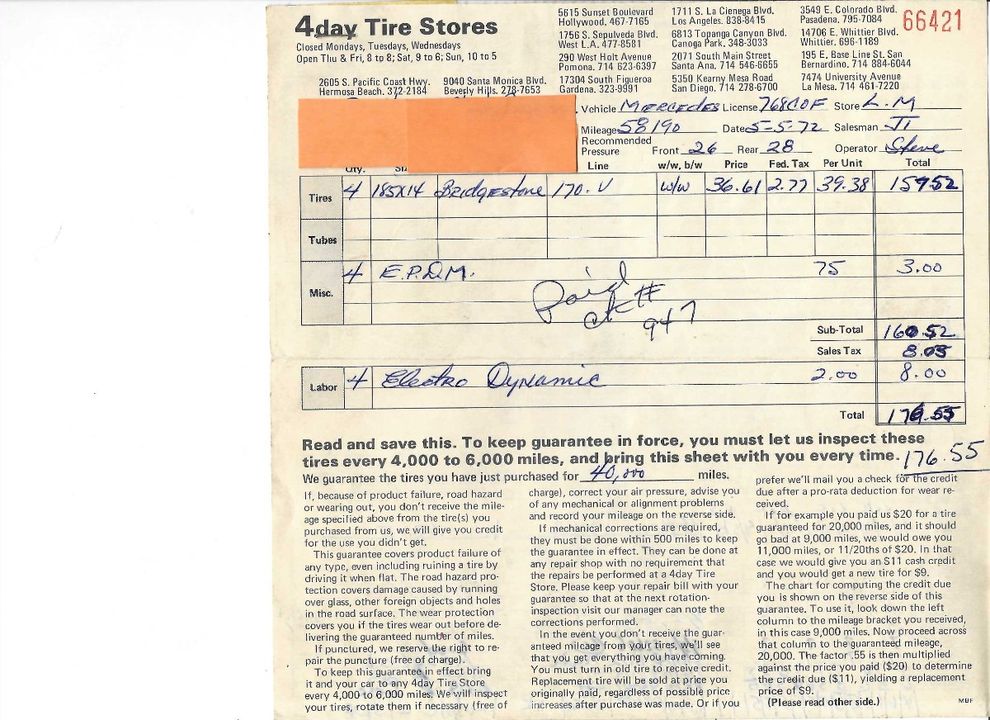 4day Tire Stores
Closed Mondays, Tuesdays, Wednesdays
Open Thu & Fri, 8 to 8; Sat, 9 to 6; Sun, 10 to 5
2605 S. Pacific Coast Hwy.
Hermosa Beach. 372-2184
9040 Santa Monica Blvd.
Beverly Hills. 278-7653
5615 Sunset Boulevard
Hollywood, 467-7165
1756 S. Sepulveda Blvd.
West L.A. 477-8581
290 West Holt Avenue
Pomona. 714 623-6397
17304 South Figueroa
Gardena. 323-9991
1711 S. La Cienega Blvd.
Los Angeles. 838-8415
6813 Topanga Canyon Blvd.
Canoga Park. 348-3033
2071 South Main Street
Santa Ana. 714 546-6655
5350 Kearny Mesa Road
San Diego. 714 278-6700
3549 E. Colorado Blvd.
Pasadena. 795-7084
14706 E. Whittier Blvd.
Whittier. 696-1189
195 E. Base Line St. San
Bernardino. 714 884-6044
7474 University Avenue
La Mesa. 714 461-7220
66421
Vehicle MERCEDES License 768COF Store L.M
Mileage 58190 Date 5-5-72 Salesman JI
Recommended
Pressure Front 26 Rear 28 Operator Steve
Qty. Line w/w, b/w Price Fed. Tax Per Unit Total
Tires 4 185X14 BRIDGESTONE 170.V W/W 36.61 2.77 39.38 157.52
Tubes
Misc. 4 E.P.D.M. 75 3.00
Paid
ck #
947
Sub-Total 160.52
Sales Tax 8.03
Labor 4 Electro Dynamic 2.00 8.00
Total 176.55
176.55
Read and save this. To keep guarantee in force, you must let us inspect these
tires every 4,000 to 6,000 miles, and bring this sheet with you every time.
We guarantee the tires you have just purchased for 40,000 miles.
If, because of product failure, road hazard
or wearing out, you don't receive the mile-
age specified above from the tire(s) you
purchased from us, we will give you credit
for the use you didn't get.
This guarantee covers product failure of
any type, even including ruining a tire by
driving it when flat. The road hazard pro-
tection covers damage caused by running
over glass, other foreign objects and holes
in the road surface. The wear protection
covers you if the tires wear out before de-
livering the guaranteed number of miles.
If punctured, we reserve the right to re-
pair the puncture (free of charge).
To keep this guarantee in effect bring
it and your car to any 4day Tire Store
every 4,000 to 6,000 miles. We will inspect
your tires, rotate them if necessary (free of
charge), correct your air pressure, advise you
of any mechanical or alignment problems
and record your mileage on the reverse side.
If mechanical corrections are required,
they must be done within 500 miles to keep
the guarantee in effect. They can be done at
any repair shop with no requirement that
the repairs be performed at a 4day Tire
Store. Please keep your repair bill with your
guarantee so that at the next rotation-
inspection visit our manager can note the
corrections performed.
In the event you don't receive the guar-
anteed mileage from your tires, we'll see
that you get everything you have coming.
You must turn in old tire to receive credit.
Replacement tire will be sold at price you
originally paid, regardless of possible price
increases after purchase was made. Or if you
prefer we'll mail you a check for the credit
due after a pro-rata deduction for wear re-
ceived.
If for example you paid us $20 for a tire
guaranteed for 20,000 miles, and it should
go bad at 9,000 miles, we would owe you
11,000 miles, or 11/20ths of $20. In that
case we would give you an $11 cash credit
and you would get a new tire for $9.
The chart for computing the credit due
you is shown on the reverse side of this
guarantee. To use it, look down the left
column to the mileage bracket you received,
in this case 9,000 miles. Now proceed across
that column to the guaranteed mileage,
20,000. The factor .55 is then multiplied
against the price you paid ($20) to determine
the credit due ($11), yielding a replacement
price of $9.
(Please read other side.)
MBF